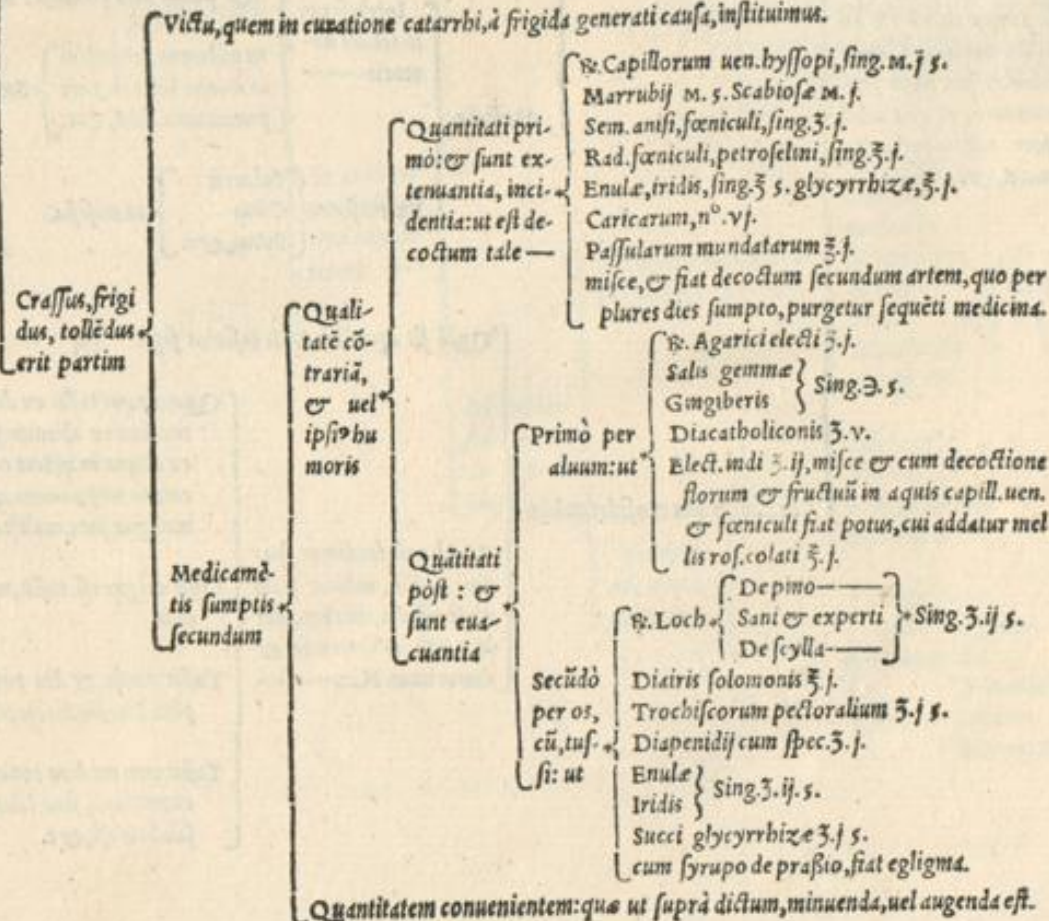 Victu, quem in curatione catarrhi, à frigida generati causa, instituimus.
Crassus, frigi
dus, tollēdus
erit partim
Medicamē-
tis sumptis
secundum
Quali-
tatē cō-
trariā,
& uel
ipsiꝰ hu
moris
Quantitati pri-
mò: & sunt ex-
tenuantia, inci-
dentia: ut est de-
coctum tale —
℞. Capillorum uen. hyssopi, sing. M. j s.
Marrubij M. s. Scabiosæ M. j.
Sem. anisi, fœniculi, sing. ʒ. j.
Rad. fœniculi, petroselini, sing. ℥. j.
Enulæ, iridis, sing. ℥ s. glycyrrhizæ, ℥. j.
Caricarum, nº. vj.
Passularum mundatarum ℥. j.
misce, & fiat decoctum secundum artem, quo per
plures dies sumpto, purgetur sequēti medicina.
Quātitati
pòst : & 
sunt eua-
cuantia
Primò per
aluum: ut
℞. Agarici electi ʒ. j.
Salis gemmæ
Gingiberis
Sing. ℈. s.
Diacatholiconis ʒ. v.
Elect. indi ʒ. ij, misce & cum decoctione
florum & fructuū in aquis capill. uen.
& fœniculi fiat potus, cui addatur mel
lis ros. colati ℥. j.
Secūdò
per os,
cū, tus-
si: ut
℞. Loch
De pino
Sani & experti
De scylla
Sing. ʒ. ij s.
Diairis solomonis ℥. j.
Trochiscorum pectoralium ʒ. j s.
Diapenidij cum spec. ʒ. j.
Enulæ
Iridis
Sing. ʒ. ij. s.
Succi glycyrrhizæ ʒ. j s.
cum syrupo de praßio, fiat egligma.
Quantitatem conuenientem: quæ ut suprà dictum, minuenda, uel augenda est.